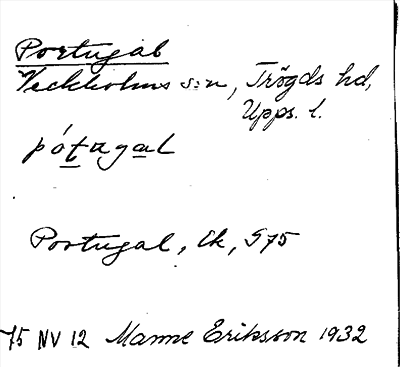 Portugal
Veckholms s:n, Trögds hd,
Upps. l.
pótagal
Portugal, Ek, S75
75 NV 12 Manne Eriksson 1932